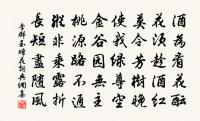 酒為看花酝
花須趁酒紅
莫令芳樹晚
使我綠尊空
金谷園無主
桃源路不通
縱非乘露折
長短盡隨風
李群玉